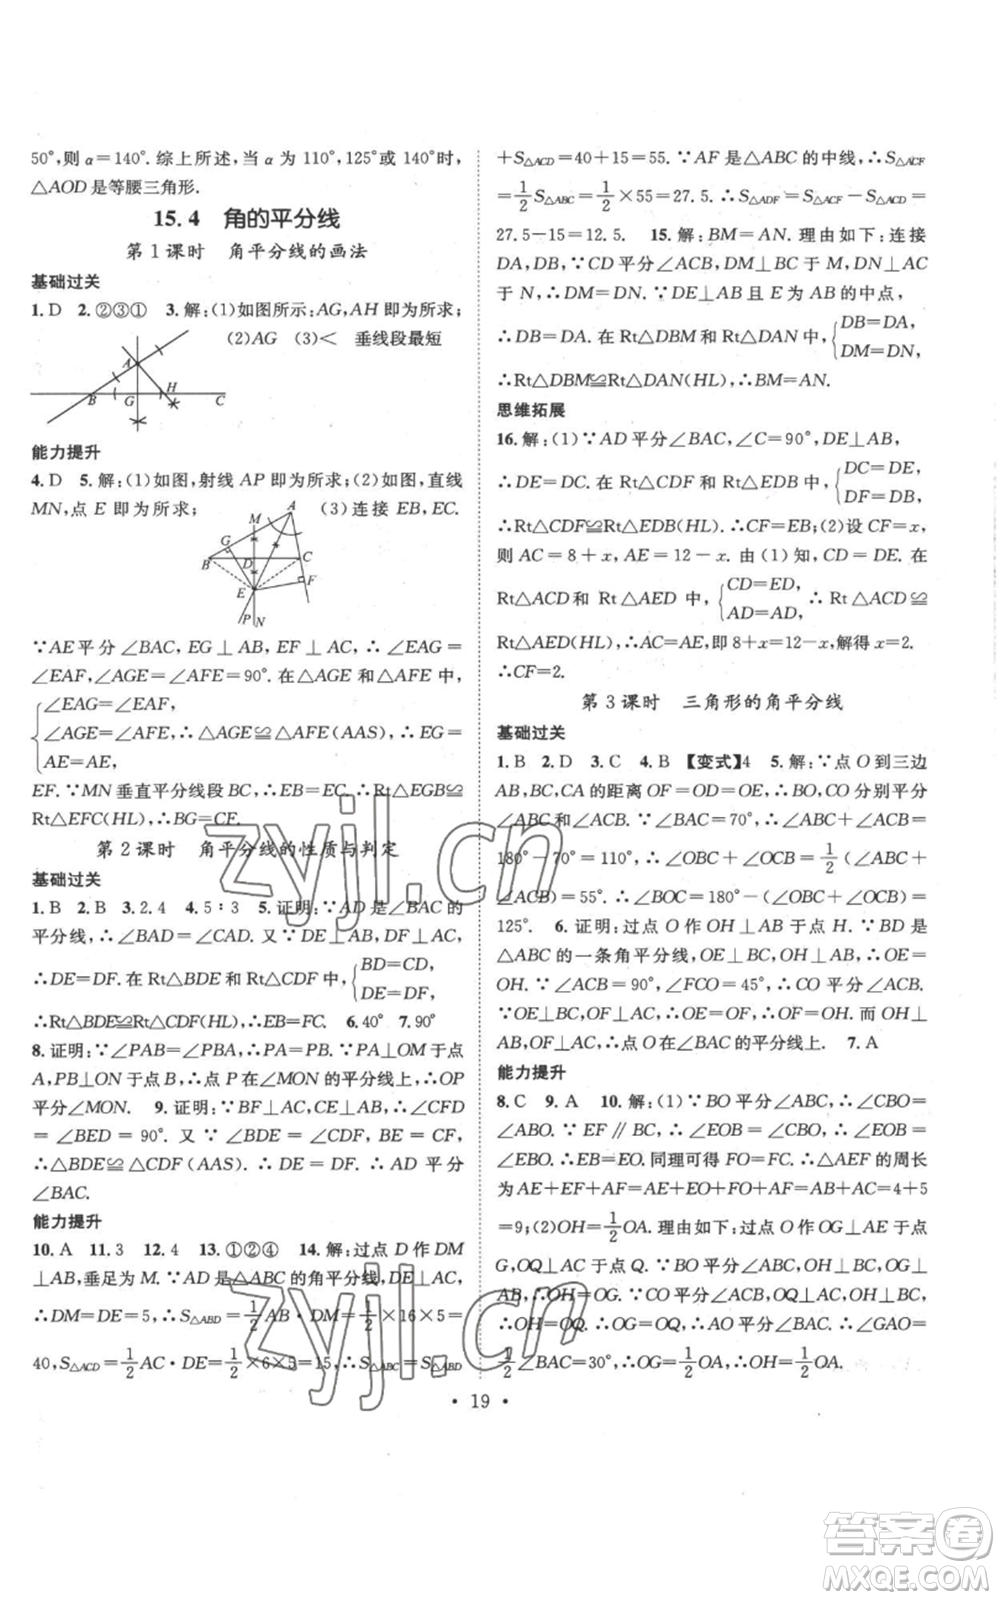 50°,则 α=140°. 综上所述,当 α 为 110°,125°或 140°时,
△AOD 是等腰三角形.
15.4 角的平分线
第 1 课时 角平分线的画法
基础过关
1. D 2. ②③① 3. 解:(1)如图所示:AG,AH 即为所求;
(2)AG (3)< 垂线段最短
A
B G H C
能力提升
4. D 5. 解:(1)如图,射线 AP 即为所求;(2)如图,直线
MN,点 E 即为所求; (3)连接 EB,EC.
A
M
G
B D C
E F
P N
∵AE平分∠BAC, EG⊥AB, EF⊥AC, ∴∠EAG=
∠EAF,∠AGE=∠AFE=90°. 在△AGE 和△AFE 中,
∠EAG=∠EAF,
∠AGE=∠AFE, ∴△AGE≌△AFE(AAS). ∴EG=
AE=AE,
EF. ∵MN 垂直平分线段 BC,∴EB=EC. ∴Rt△EGB≌
Rt△EFC(HL),∴BG=CE.
第 2 课时 角平分线的性质与判定
基础过关
1. B 2. B 3. 2.4 4. 5∶3 5. 证明:∵AD 是∠BAC 的
平分线,∴∠BAD=∠CAD. 又∵DE⊥AB,DF⊥AC,
∴DE=DF. 在 Rt△BDE 和 Rt△CDF 中, BD=CD,
DE=DF,
∴Rt△BDE≌Rt△CDF(HL),∴EB=FC. 6. 40° 7. 90°
8. 证明:∵∠PAB=∠PBA,∴PA=PB. ∵PA⊥OM 于点
A,PB⊥ON 于点 B,∴点 P 在∠MON 的平分线上,∴OP
平分∠MON. 9. 证明:∵BF⊥AC, CE⊥AB, ∴∠CFD
=∠BED=90°. 又∵∠BDE=∠CDF, BE=CF,
∴△BDE≌△CDF(AAS). ∴DE=DF. ∴AD 平分
∠BAC.
能力提升
10. A 11. 3 12. 4 13. ①②④ 14. 解:过点 D 作 DM
⊥AB,垂足为 M. ∵AD 是△ABC 的角平分线,DE⊥AC,
∴DM=DE=5,∴S△ABD=1/2AB·DM=1/2×16×5=
40,S△ACD=1/2AC·DE=1/2×6×5=15,∴S△ABC=S△ABD
+S△ACD=40+15=55. ∵AF 是△ABC 的中线,∴S△ACF
=1/2S△ABC=1/2×55=27.5. ∴S△ADF=S△ACF-S△ACD=
27.5-15=12.5. 15. 解:BM=AN. 理由如下:连接
DA,DB,∵CD 平分∠BCA,DM⊥BC 于 M,DN⊥AC
于 N,∴DM=DN. ∵DE⊥AB 且 E 为 AB 的中点,
∴DB=DA. 在 Rt△DBM 和 Rt△DAN 中, DB=DA,
DM=DN,
∴Rt△DBM≌Rt△DAN(HL),∴BM=AN.
思维拓展
16. 解:(1)∵AD 平分∠BAC,∠C=90°,DE⊥AB,
∴DE=DC. 在 Rt△CDF 和 Rt△EDB 中, DC=DE,
DF=DB,
∴Rt△CDF≌Rt△EDB(HL). ∴CF=EB;(2)设 CF=x,
则 AC=8+x,AE=12-x. 由(1)知,CD=DE. 在
Rt△ACD 和 Rt△AED 中, CD=ED,
AD=AD, ∴Rt△ACD≌
Rt△AED(HL). ∴AC=AE,即 8+x=12-x,解得 x=2.
∴CF=2.
第 3 课时 三角形的角平分线
基础过关
1. B 2. D 3. C 4. B 【变式】4 5. 解:∵点 O 到三边
AB,BC,CA 的距离 OF=OD=OE,∴BO,CO 分别平分
∠ABC 和∠ACB. ∵∠BAC=70°,∴∠ABC+∠ACB=
180°-70°=110°,∴∠OBC+∠OCB=1/2(∠ABC+
∠ACB)=55°. ∴∠BOC=180°-(∠OBC+∠OCB)=
125°. 6. 证明:过点 O 作 OH⊥AB 于点 H. ∵BD 是
△ABC 的一条角平分线,OE⊥BC,OH⊥AB,∴OE=
OH. ∵∠ACB=90°,∠FCO=45°,∴CO 平分∠ACB.
∵OE⊥BC,OF⊥AC,∴OE=OF,∴OF=OH. ∵OH⊥
AB,OF⊥AC,∴点 O 在∠BAC 的平分线上. 7. A
能力提升
8. C 9. A 10. 解:(1)∵BO 平分∠ABC,∴∠CBO=
∠ABO. ∵EF∥BC,∴∠EOB=∠CBO,∴∠EOB=
∠EBO. ∴EB=EO. 同理可得 FO=FC. ∴△AEF 的周长
为 AE+EF+AF=AE+EO+FO+AF=AB+AC=4+5
=9;(2)OH=1/2OA. 理由如下:过点 O 作 OG⊥AE 于点
G,OQ⊥AC 于点 Q. ∵BO 平分∠ABC,OH⊥BC,
∴OG=OH. 同理可得 OH=OQ. ∵OG⊥AE,OQ⊥AC,
∴OG=OQ. ∴OH=OG=OQ,∴AO 平分∠BAC,∴∠GAO=
1/2∠BAC=30°,∴OG=1/2OA,∴OH=1/2OA.
· 19 ·
zyjl.cn
zyjl.cn
答案卷
MXQE.COM